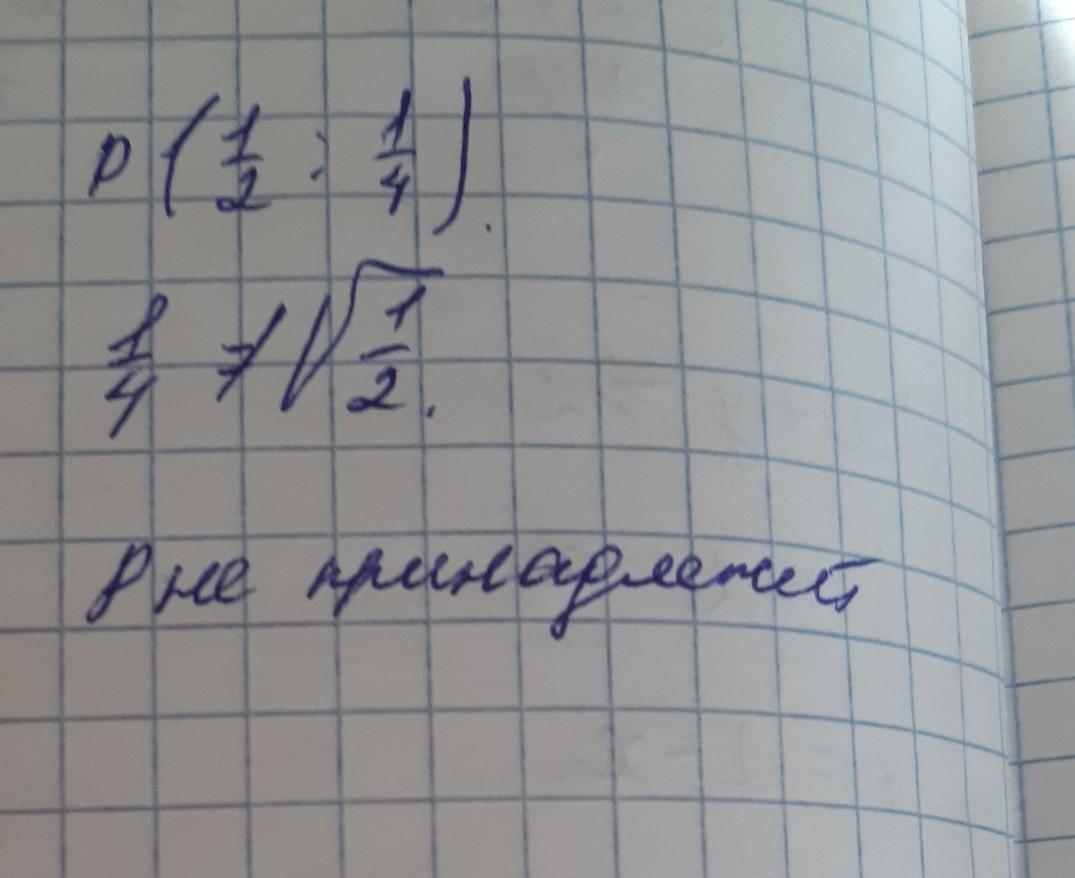 P (1/2 ; 1/4).
1/4 ≠ √1/2.
P не принадлежит